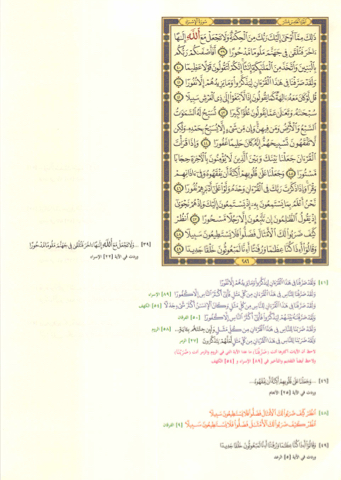 ذَٰلِكَ مِمَّا أَوْحَىٰ إِلَيْكَ رَبُّكَ مِنَ الْحِكْمَةِ وَلَا تَجْعَلْ مَعَ اللَّهِ إِلَٰهًا
آخَرَ فَتُلْقَىٰ فِي جَهَنَّمَ مَلُومًا مَدْحُورًا ٣٩ أَفَأَصْفَاكُمْ رَبُّكُمْ
بِالْبَنِينَ وَاتَّخَذَ مِنَ الْمَلَائِكَةِ إِنَاثًا إِنَّكُمْ لَتَقُولُونَ قَوْلًا عَظِيمًا ٤٠
وَلَقَدْ صَرَّفْنَا فِي هَٰذَا الْقُرْآنِ لِيَذَّكَّرُوا وَمَا يَزِيدُهُمْ إِلَّا نُفُورًا ٤١
قُلْ لَوْ كَانَ مَعَهُ آلِهَةٌ كَمَا يَقُولُونَ إِذًا لَابْتَغَوْا إِلَىٰ ذِي الْعَرْشِ سَبِيلًا ٤٢
سُبْحَانَهُ وَتَعَالَىٰ عَمَّا يَقُولُونَ عُلُوًّا كَبِيرًا ٤٣ تُسَبِّحُ لَهُ السَّمَاوَاتُ
السَّبْعُ وَالْأَرْضُ وَمَنْ فِيهِنَّ وَإِنْ مِنْ شَيْءٍ إِلَّا يُسَبِّحُ بِحَمْدِهِ وَلَٰكِنْ
لَا تَفْقَهُونَ تَسْبِيحَهُمْ إِنَّهُ كَانَ حَلِيمًا غَفُورًا ٤٤ وَإِذَا قَرَأْتَ
الْقُرْآنَ جَعَلْنَا بَيْنَكَ وَبَيْنَ الَّذِينَ لَا يُؤْمِنُونَ بِالْآخِرَةِ حِجَابًا
مَسْتُورًا ٤٥ وَجَعَلْنَا عَلَىٰ قُلُوبِهِمْ أَكِنَّةً أَنْ يَفْقَهُوهُ وَفِي آذَانِهِمْ
وَقْرًا وَإِذَا ذَكَرْتَ رَبَّكَ فِي الْقُرْآنِ وَحْدَهُ وَلَّوْا عَلَىٰ أَدْبَارِهِمْ نُفُورًا ٤٦
نَحْنُ أَعْلَمُ بِمَا يَسْتَمِعُونَ بِهِ إِذْ يَسْتَمِعُونَ إِلَيْكَ وَإِذْ هُمْ نَجْوَىٰ
إِذْ يَقُولُ الظَّالِمُونَ إِنْ تَتَّبِعُونَ إِلَّا رَجُلًا مَسْحُورًا ٤٧ انْظُرْ
كَيْفَ ضَرَبُوا لَكَ الْأَمْثَالَ فَضَلُّوا فَلَا يَسْتَطِيعُونَ سَبِيلًا ٤٨
وَقَالُوا أَإِذَا كُنَّا عِظَامًا وَرُفَاتًا أَإِنَّا لَمَبْعُوثُونَ خَلْقًا جَدِيدًا ٤٩
٢٨٦
[٣٩] ...وَلَا تَجْعَلْ مَعَ اللَّهِ إِلَٰهًا آخَرَ فَتُلْقَىٰ فِي جَهَنَّمَ مَلُومًا مَدْحُورًا
وردت في الآية [٢٢] الإسراء
[٤١] وَلَقَدْ صَرَّفْنَا فِي هَٰذَا الْقُرْآنِ لِيَذَّكَّرُوا وَمَا يَزِيدُهُمْ إِلَّا نُفُورًا
وَلَقَدْ صَرَّفْنَا لِلنَّاسِ فِي هَٰذَا الْقُرْآنِ مِنْ كُلِّ مَثَلٍ فَأَبَىٰ أَكْثَرُ النَّاسِ إِلَّا كُفُورًا [٨٩] الإسراء
وَلَقَدْ صَرَّفْنَا فِي هَٰذَا الْقُرْآنِ لِلنَّاسِ مِنْ كُلِّ مَثَلٍ وَكَانَ الْإِنْسَانُ أَكْثَرَ شَيْءٍ جَدَلًا [٥٤] الكهف
وَلَقَدْ صَرَّفْنَاهُ بَيْنَهُمْ لِيَذَّكَّرُوا فَأَبَىٰ أَكْثَرُ النَّاسِ إِلَّا كُفُورًا [٥٠] الفرقان
وَلَقَدْ ضَرَبْنَا لِلنَّاسِ فِي هَٰذَا الْقُرْآنِ مِنْ كُلِّ مَثَلٍ وَلَئِنْ جِئْتَهُمْ بِآيَةٍ... [٥٨] الروم
وَلَقَدْ ضَرَبْنَا لِلنَّاسِ فِي هَٰذَا الْقُرْآنِ مِنْ كُلِّ مَثَلٍ لَعَلَّهُمْ يَتَذَكَّرُونَ [٢٧] الزمر
[٤٦] ...وَجَعَلْنَا عَلَىٰ قُلُوبِهِمْ أَكِنَّةً أَنْ يَفْقَهُوهُ...
وردت في الآية [٢٥] الأنعام
[٤٨] انْظُرْ كَيْفَ ضَرَبُوا لَكَ الْأَمْثَالَ فَضَلُّوا فَلَا يَسْتَطِيعُونَ سَبِيلًا
انْظُرْ كَيْفَ ضَرَبُوا لَكَ الْأَمْثَالَ فَضَلُّوا فَلَا يَسْتَطِيعُونَ سَبِيلًا [٩] الفرقان
[٤٩] وَقَالُوا أَإِذَا كُنَّا عِظَامًا وَرُفَاتًا أَإِنَّا لَمَبْعُوثُونَ خَلْقًا جَدِيدًا